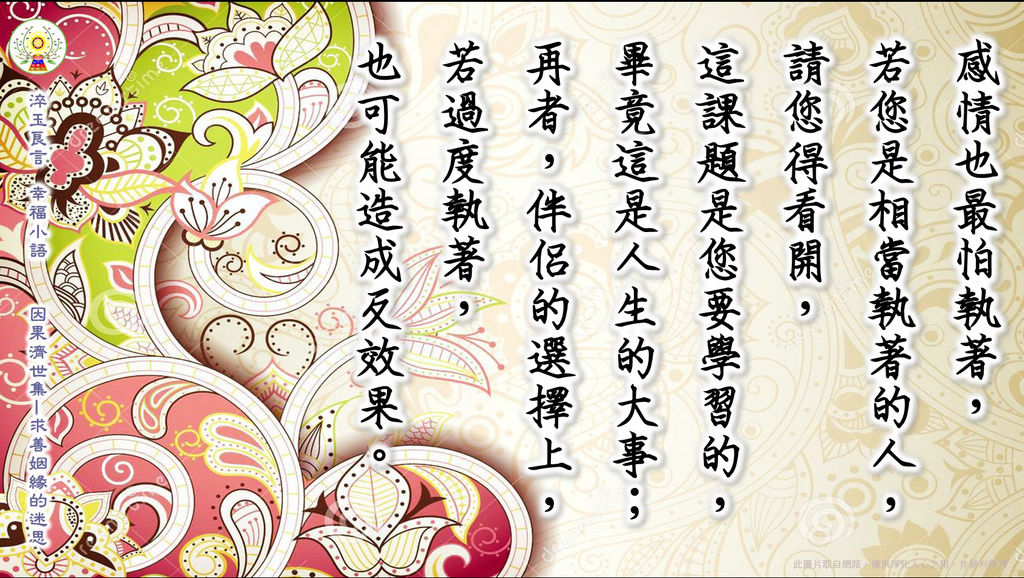 感情也最怕執著，
若您是相當執著的人，
請您得看開，
這課題是您要學習的，
畢竟這是人生的大事；
再者，伴侶的選擇上，
若過度執著，
也可能造成反效果。
淬玉良言 幸福小語 因果濟世集－求善姻緣的迷思
此圖片取自網路，僅供淨化人心之用，非營利使用